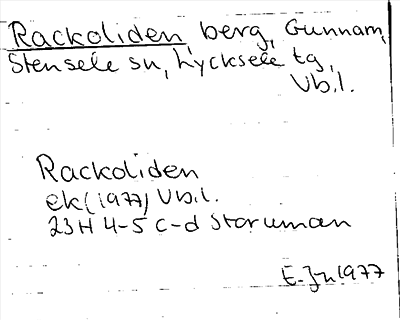 Rackoliden, berg, Gunnarn,
Stensele sn, Lycksele tg,
Vb.l.
Rackoliden
ek (1977) Vb.l.
23H 4-5 c-d Storuman
E. Jn 1977